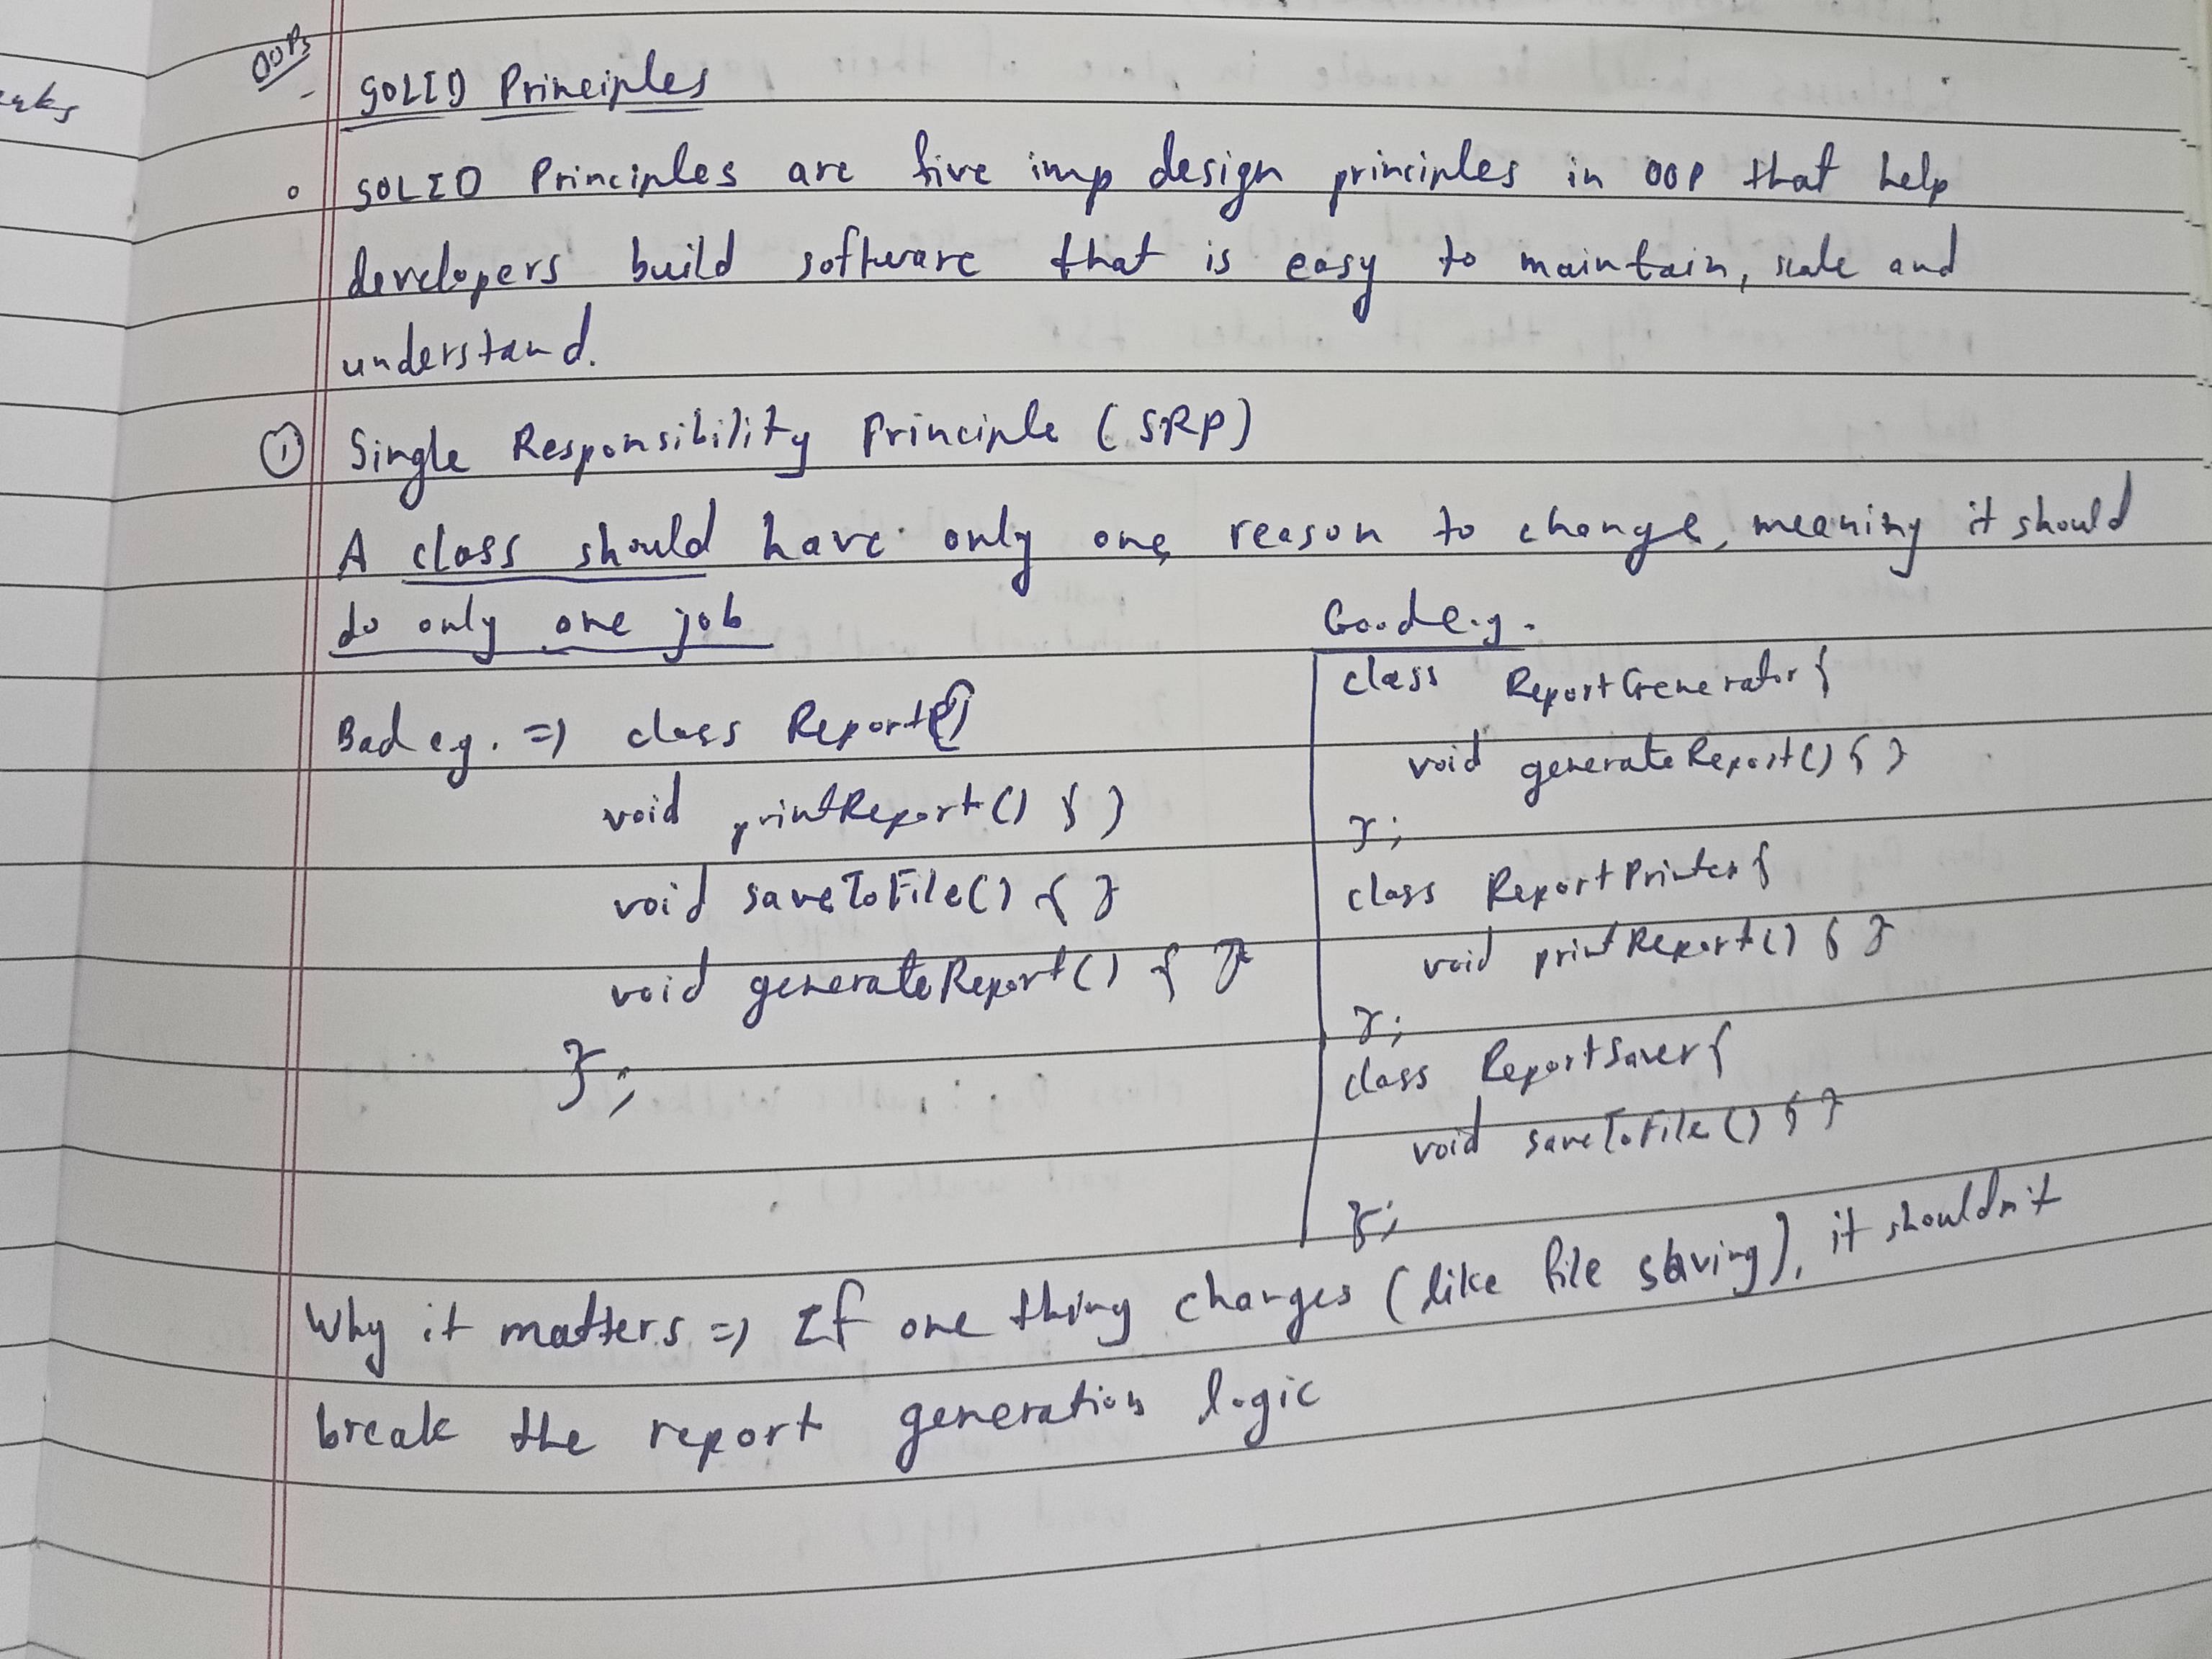 OOPs
- SOLID Principles
o SOLID Principles are five imp design principles in OOP that help
developers build software that is easy to maintain, scale and
understand.
① Single Responsibility Principle (SRP)
A class should have only one reason to change, meaning it should
do only one job
Bad e.g. => class Report{
void printReport() { }
void saveToFile() { }
void generateReport() { }
};
Good e.g.
class ReportGenerator {
void generateReport() { }
};
class ReportPrinter {
void printReport() { }
};
class ReportSaver {
void saveToFile() { }
};
Why it matters => If one thing changes (like file saving), it shouldn't
break the report generation logic